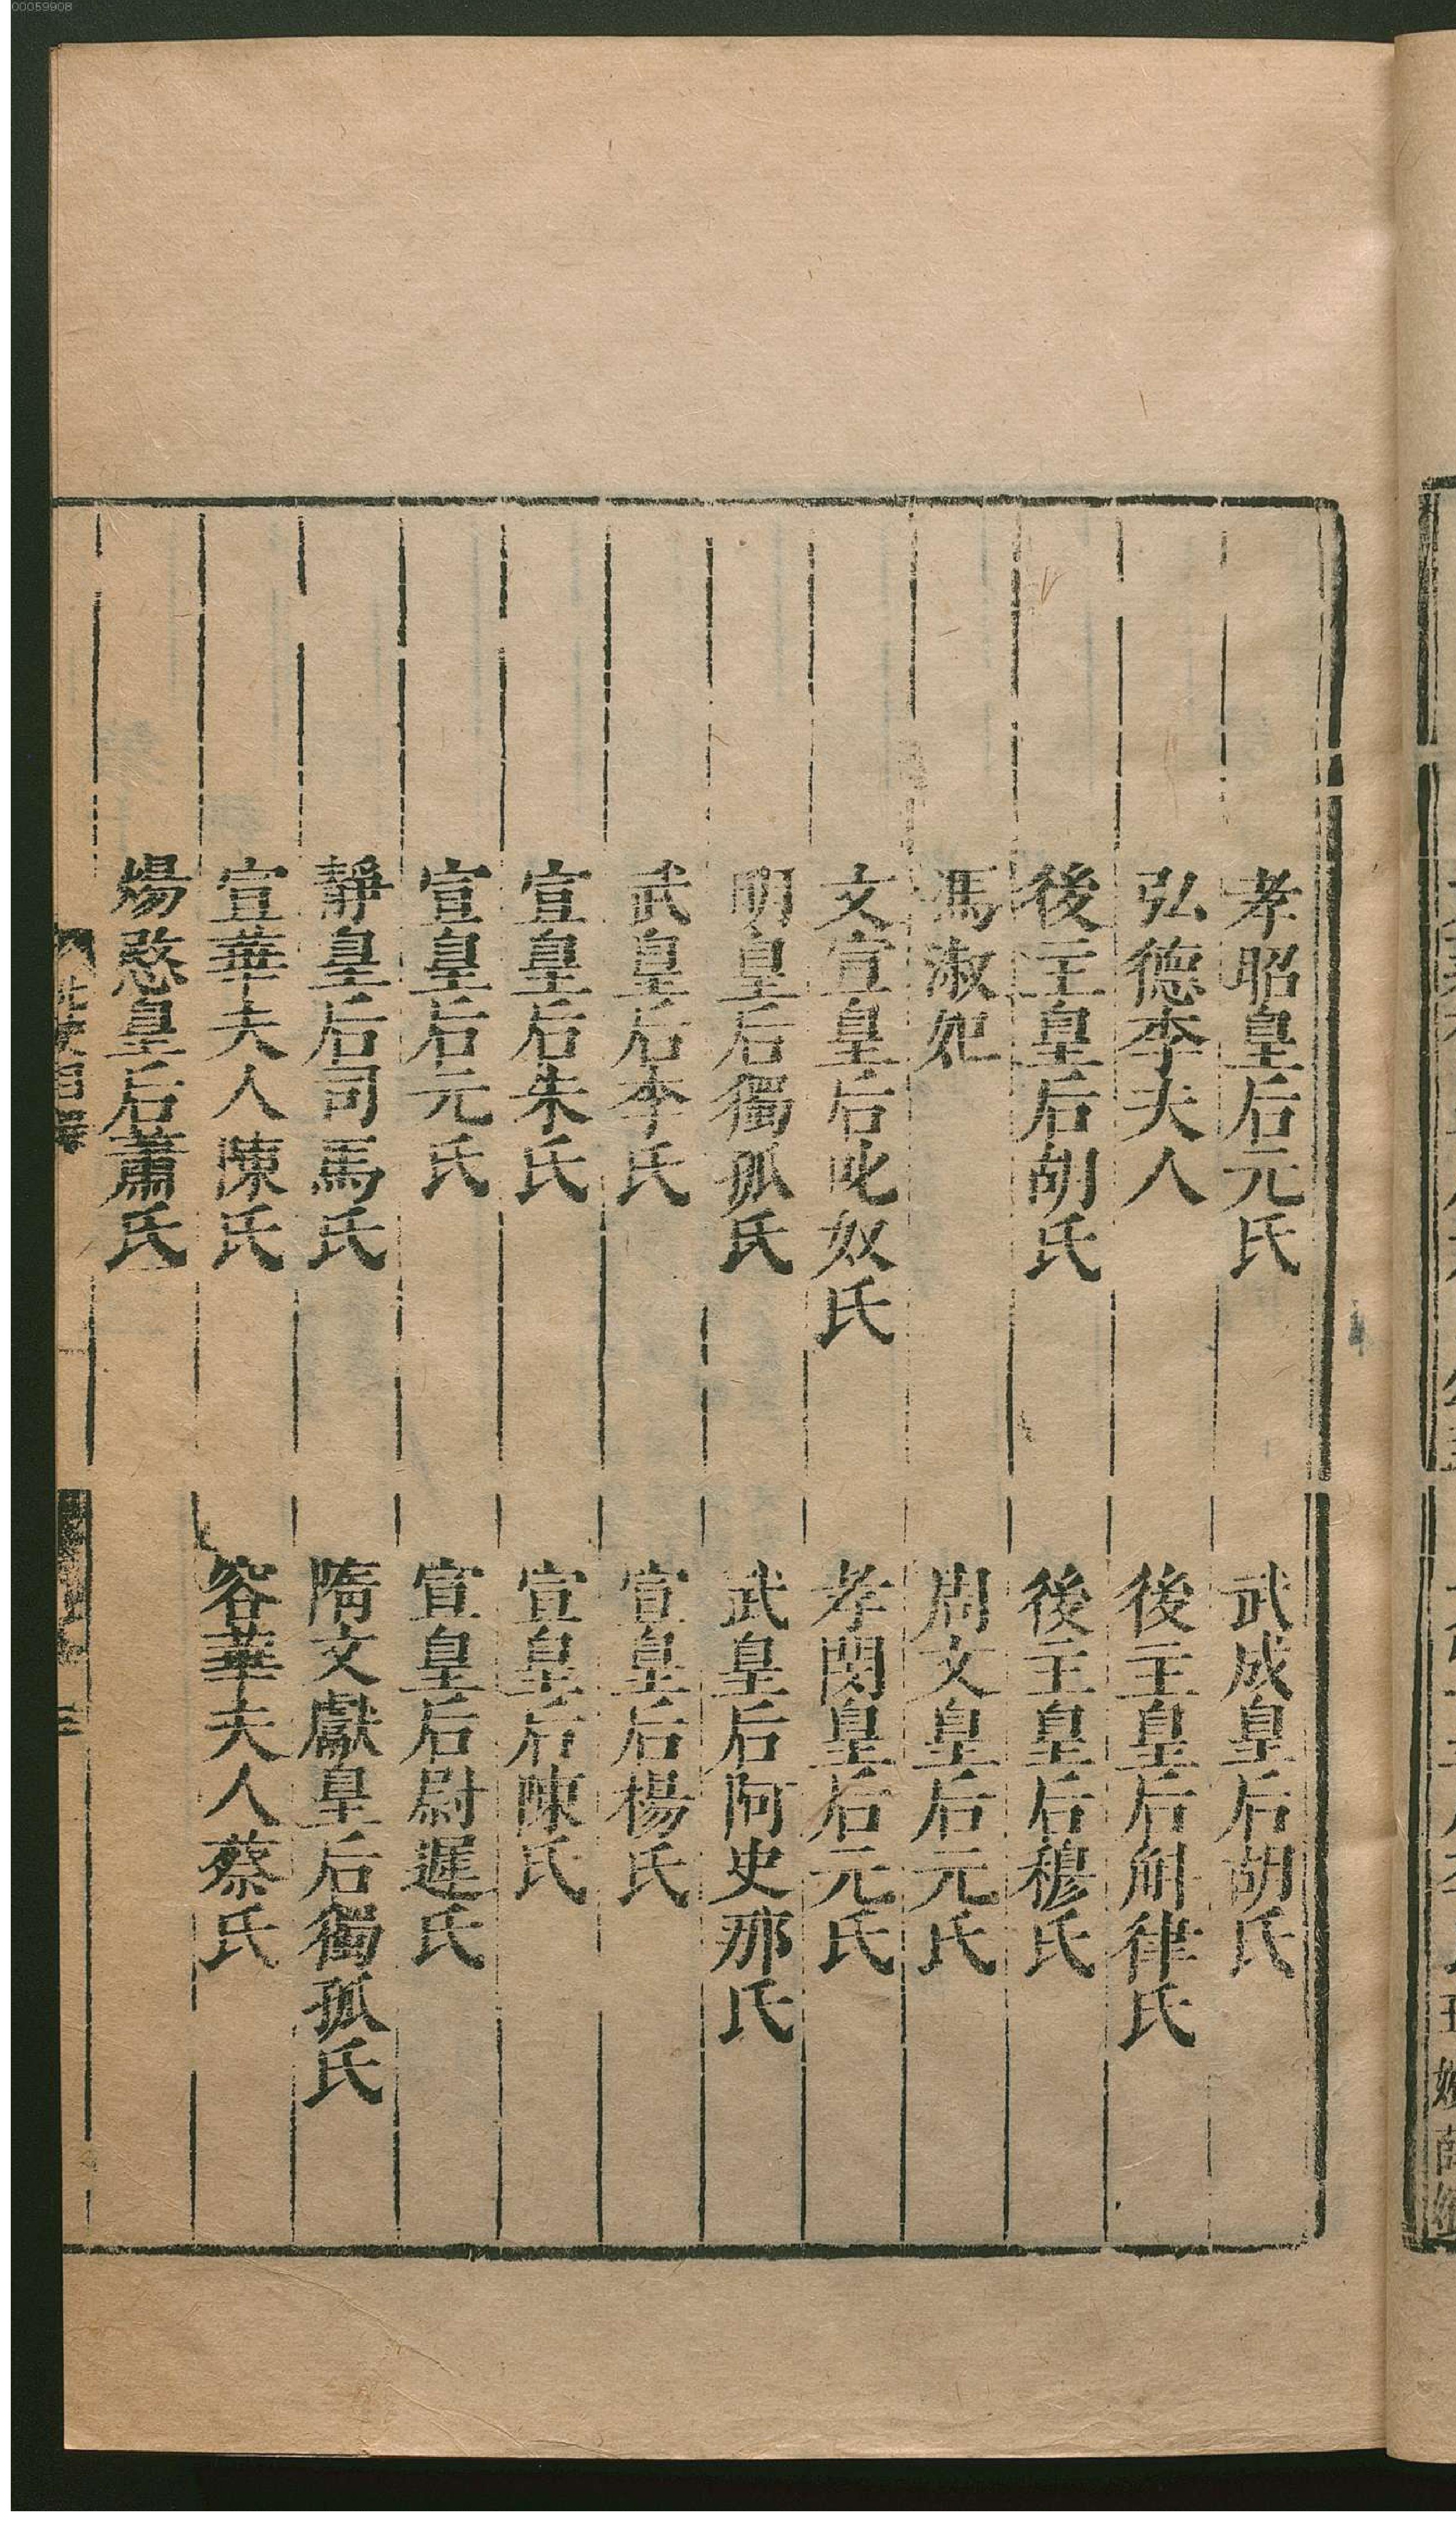 00059908
孝昭皇后元氏 武成皇后胡氏
弘德李夫人 後主皇后斛律氏
後主皇后胡氏 後主皇后穆氏
馮淑妃 周文皇后元氏
文宣皇后叱奴氏 孝閔皇后元氏
明皇后獨孤氏 武皇后阿史那氏
武皇后李氏 宣皇后楊氏
宣皇后朱氏 宣皇后陳氏
宣皇后元氏 宣皇后尉遲氏
靜皇后司馬氏 隋文獻皇后獨孤氏
宣華夫人陳氏 容華夫人蔡氏
煬愍皇后蕭氏